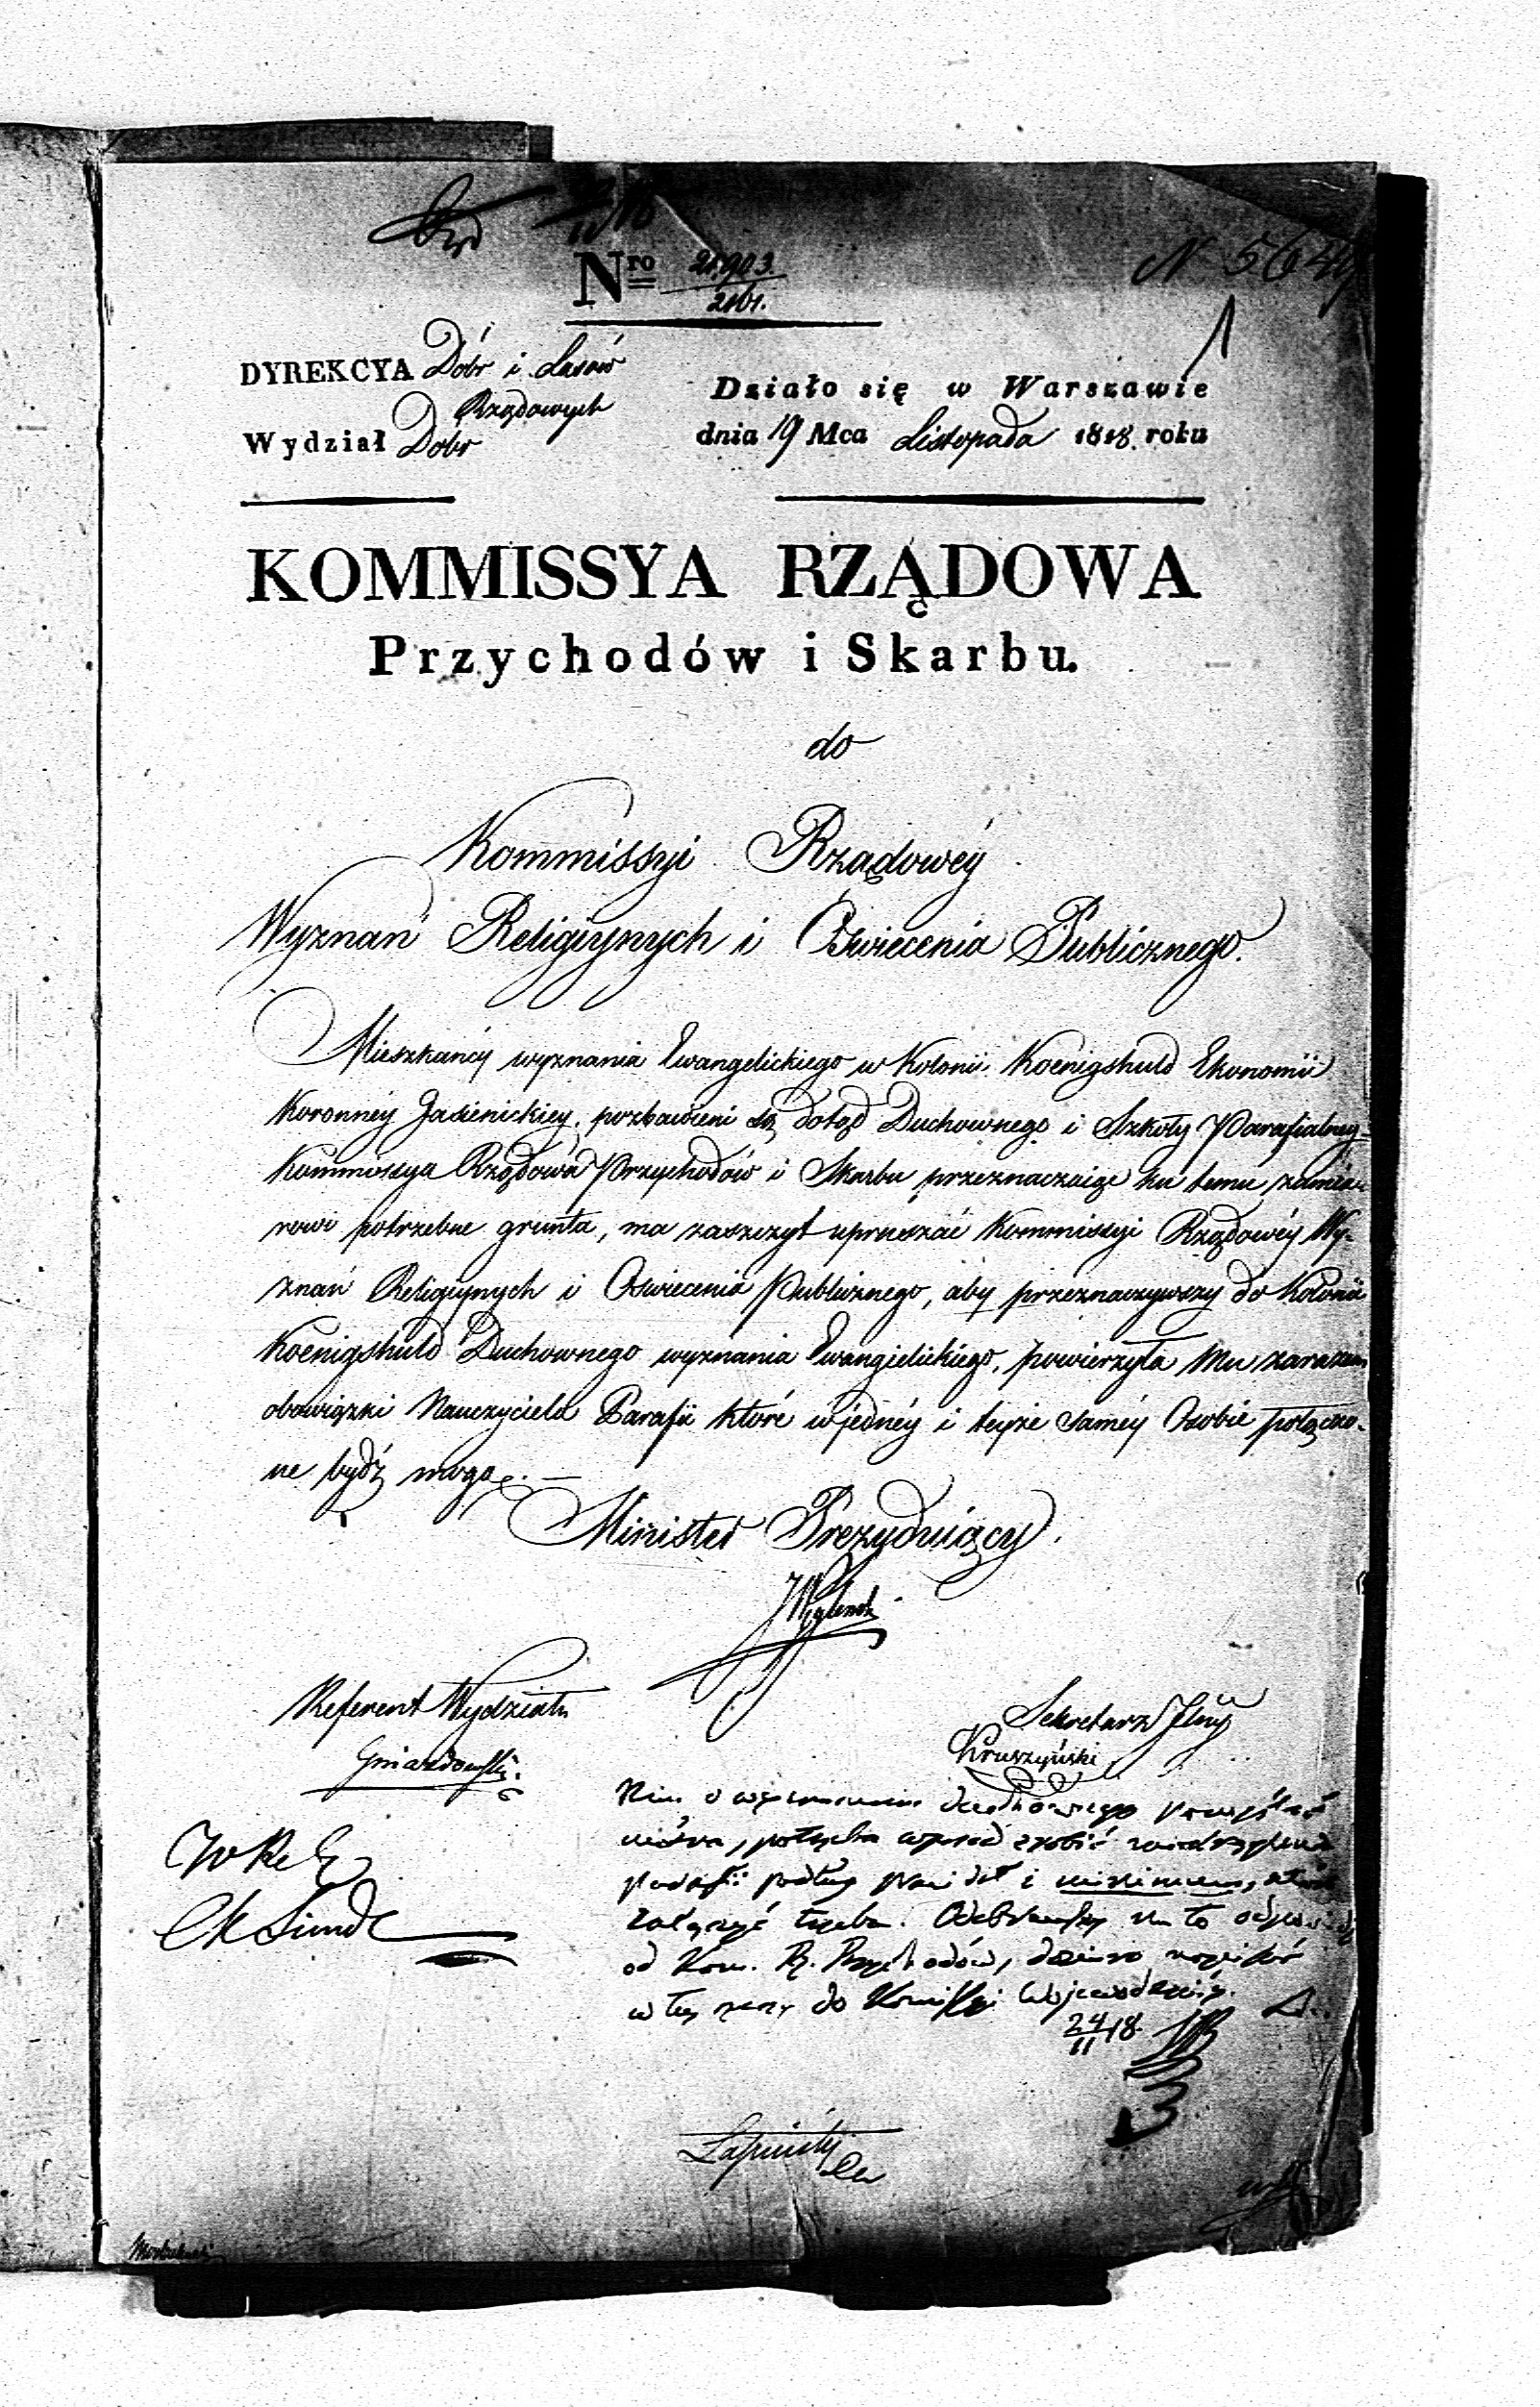 N 5649
Nro 21,903.
2161.
DYREKCYA Dóbr i Lasów
Rządowych
Wydział Dobr
Działo się w Warszawie
dnia 19 Mca Listopada 1818 roku
KOMMISSYA RZĄDOWA
Przychodów i Skarbu.
do
Kommissyi Rządowéy
Wyznań Religiynych i Oświecenia Publicznego.
Mieszkańcy wyznania Ewangelickiego w Kolonii Koenigshuld Ekonomii
Koronnéy Jasienickiey, pozbawieni są dotąd Duchownego i Szkoły Parafialney
Kommissya Rządowa Przychodów i Skarbu przeznaczaiąc ku temu zamia-
rowi potrzebne grunta, ma zaszczyt upraszać Kommissyi Rządowéy Wy-
znań Religiynych i Oświecenia Publicznego, aby przeznaczywszy do Kolonii
Koenigshuld Duchownego wyznania Ewangielickiego, powierzyła Mu zarazem
obowiązki Nauczyciela Parafii któré w jednéy i teyże saméy Osobie połączo-
ne bydź mogą. —
Minister Prezyduiący
Referent Wydziału
Gniazdowski.
Sekretarz Jlny
Kruszyński
Nim o Duchownego pomyśleć
można, potrzeba wprzód zrobić
Parafii podług prawideł i minimum,
załączyć trzeba. Odebrawszy na to
od Kom. R. Przychodów, dopiero napisać
w tey mierze do Komissyi Wojewódzkiéy.
24/11 18